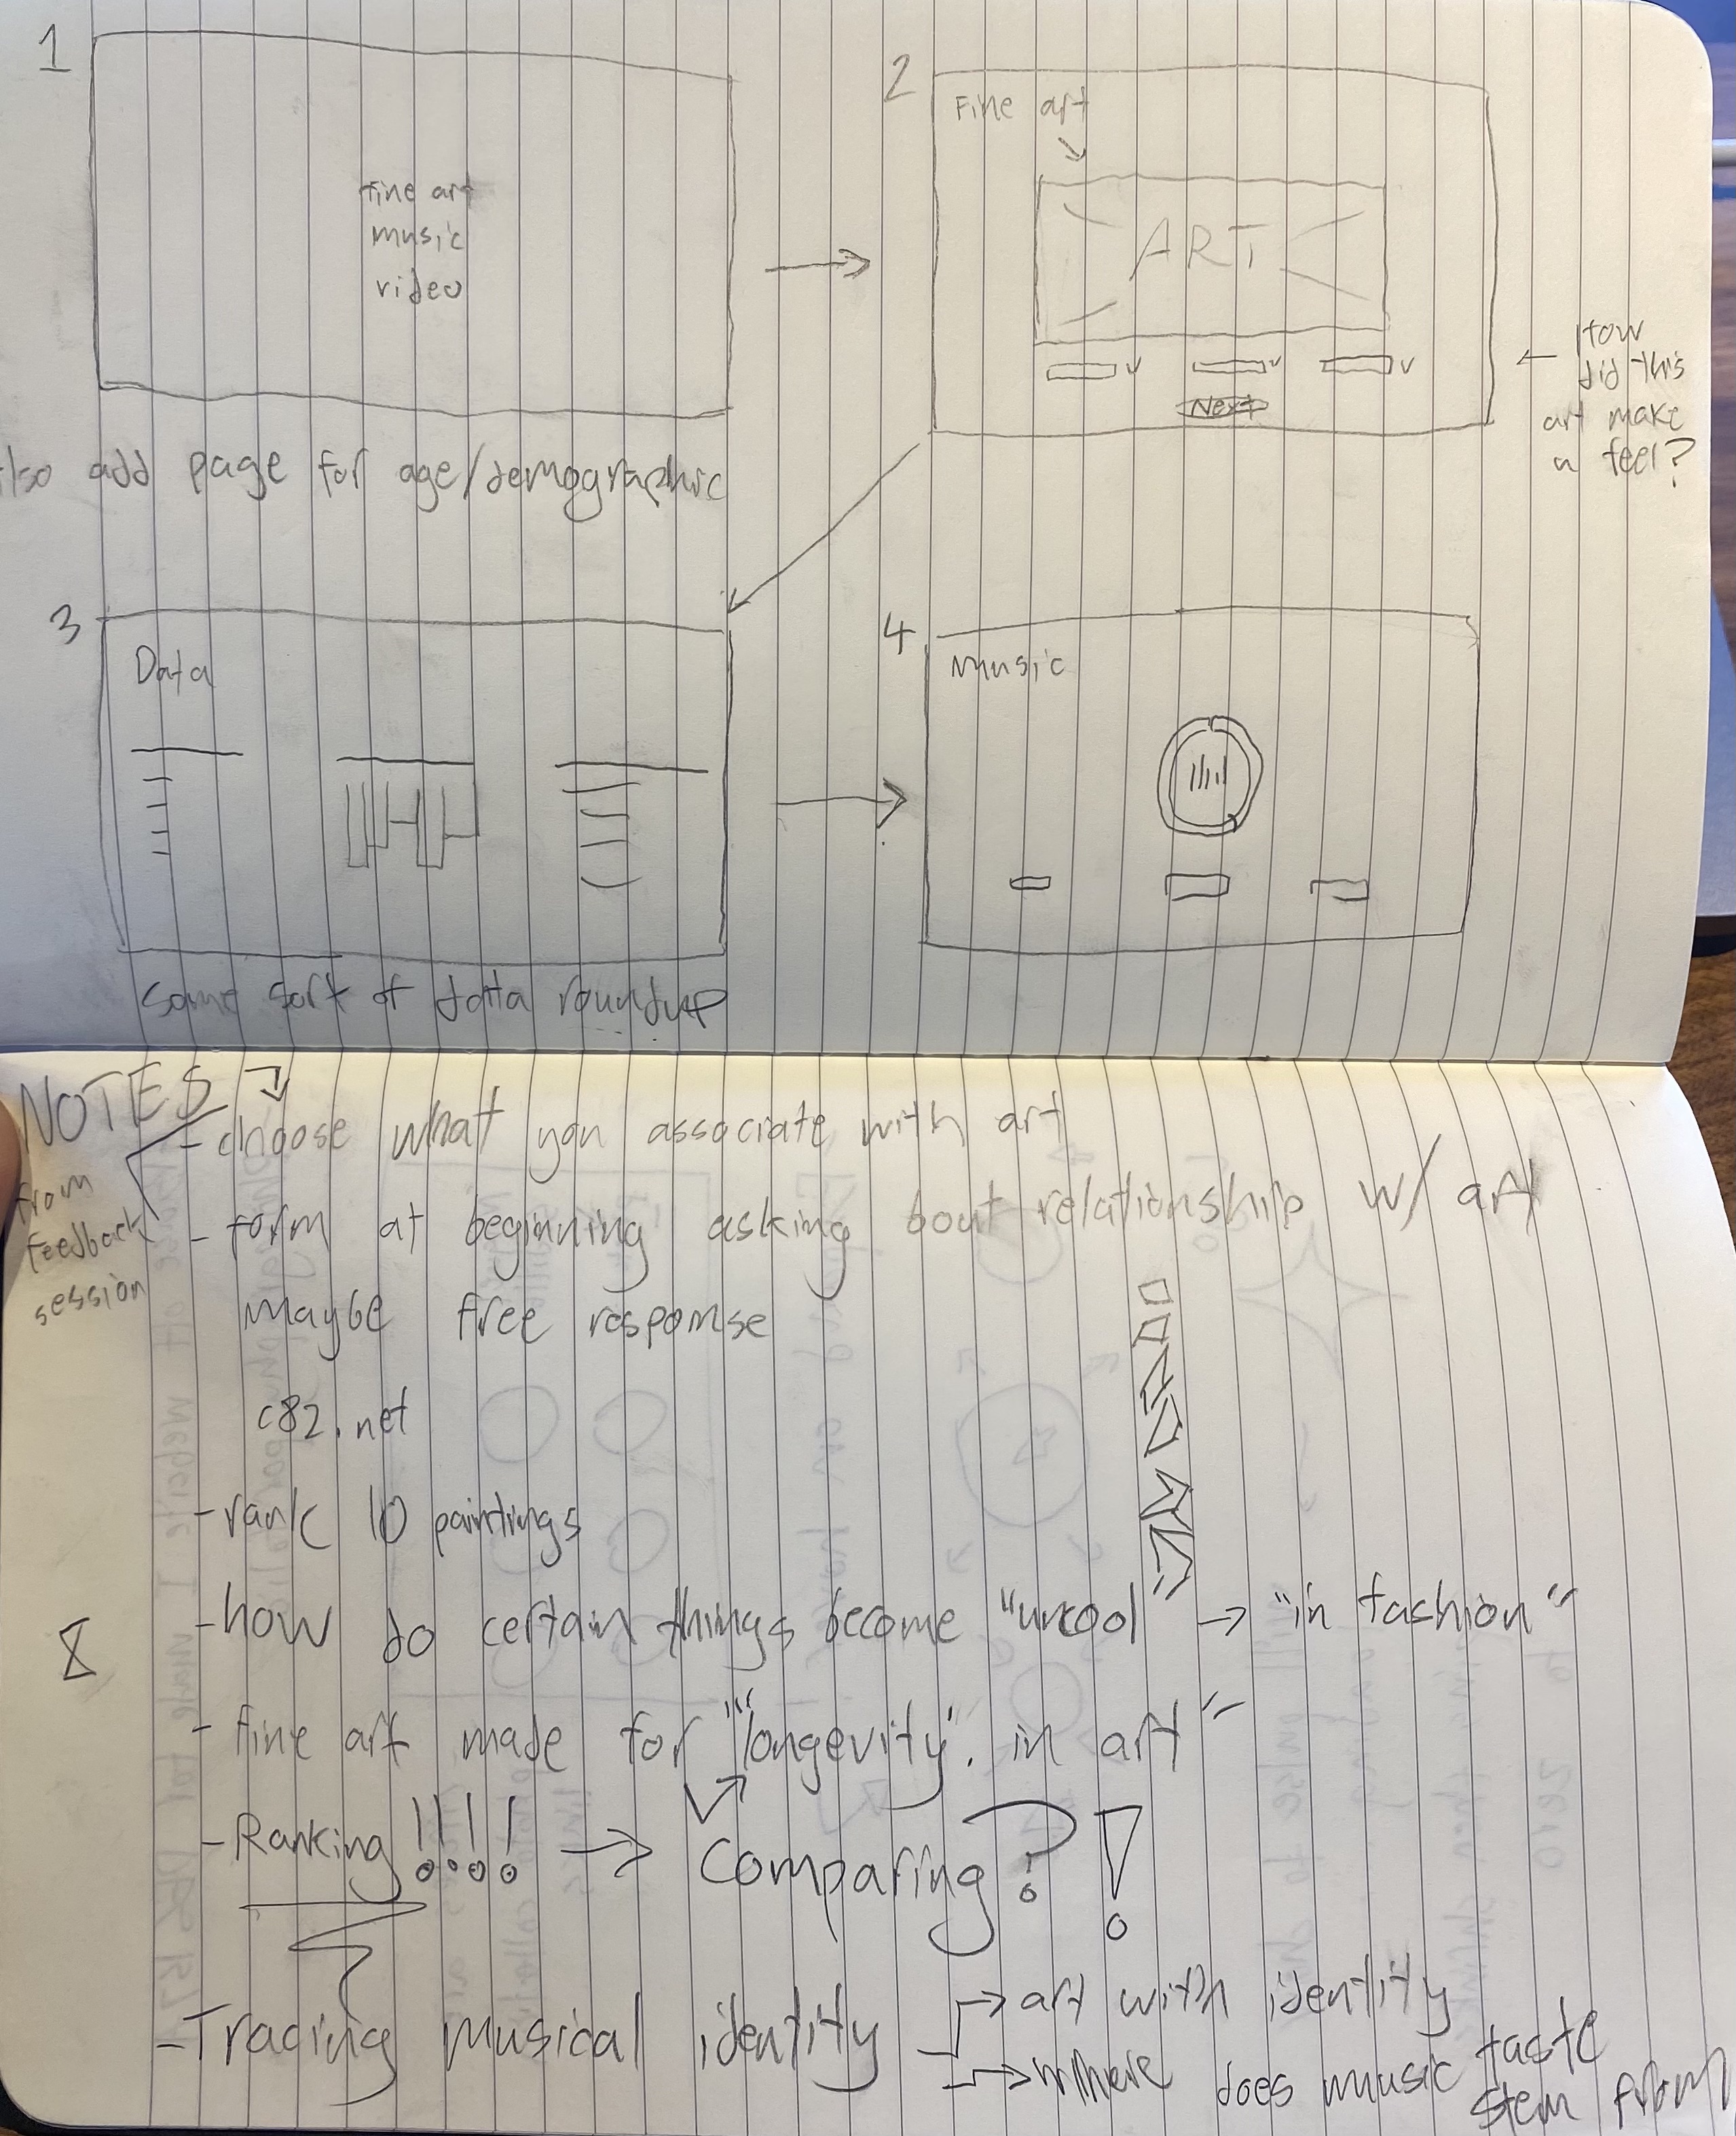 1
fine art
music
video
2
Fine art
ART
Next
How
did this
art make
u feel?
also add page for age/demographic
3
Data
some sort of data roundup
4
music
NOTES
from
feedback
session
- choose what you associate with art
- form at beginning asking bout relationship w/ art
maybe free response
c82.net
- rank 10 paintings
- how do certain things become "uncool" → "in fashion"
- fine art made for "longevity". in art"
- Ranking !!!! → Comparing?!
- Tracing musical identity
→ art with identity
→ where does music taste
stem from